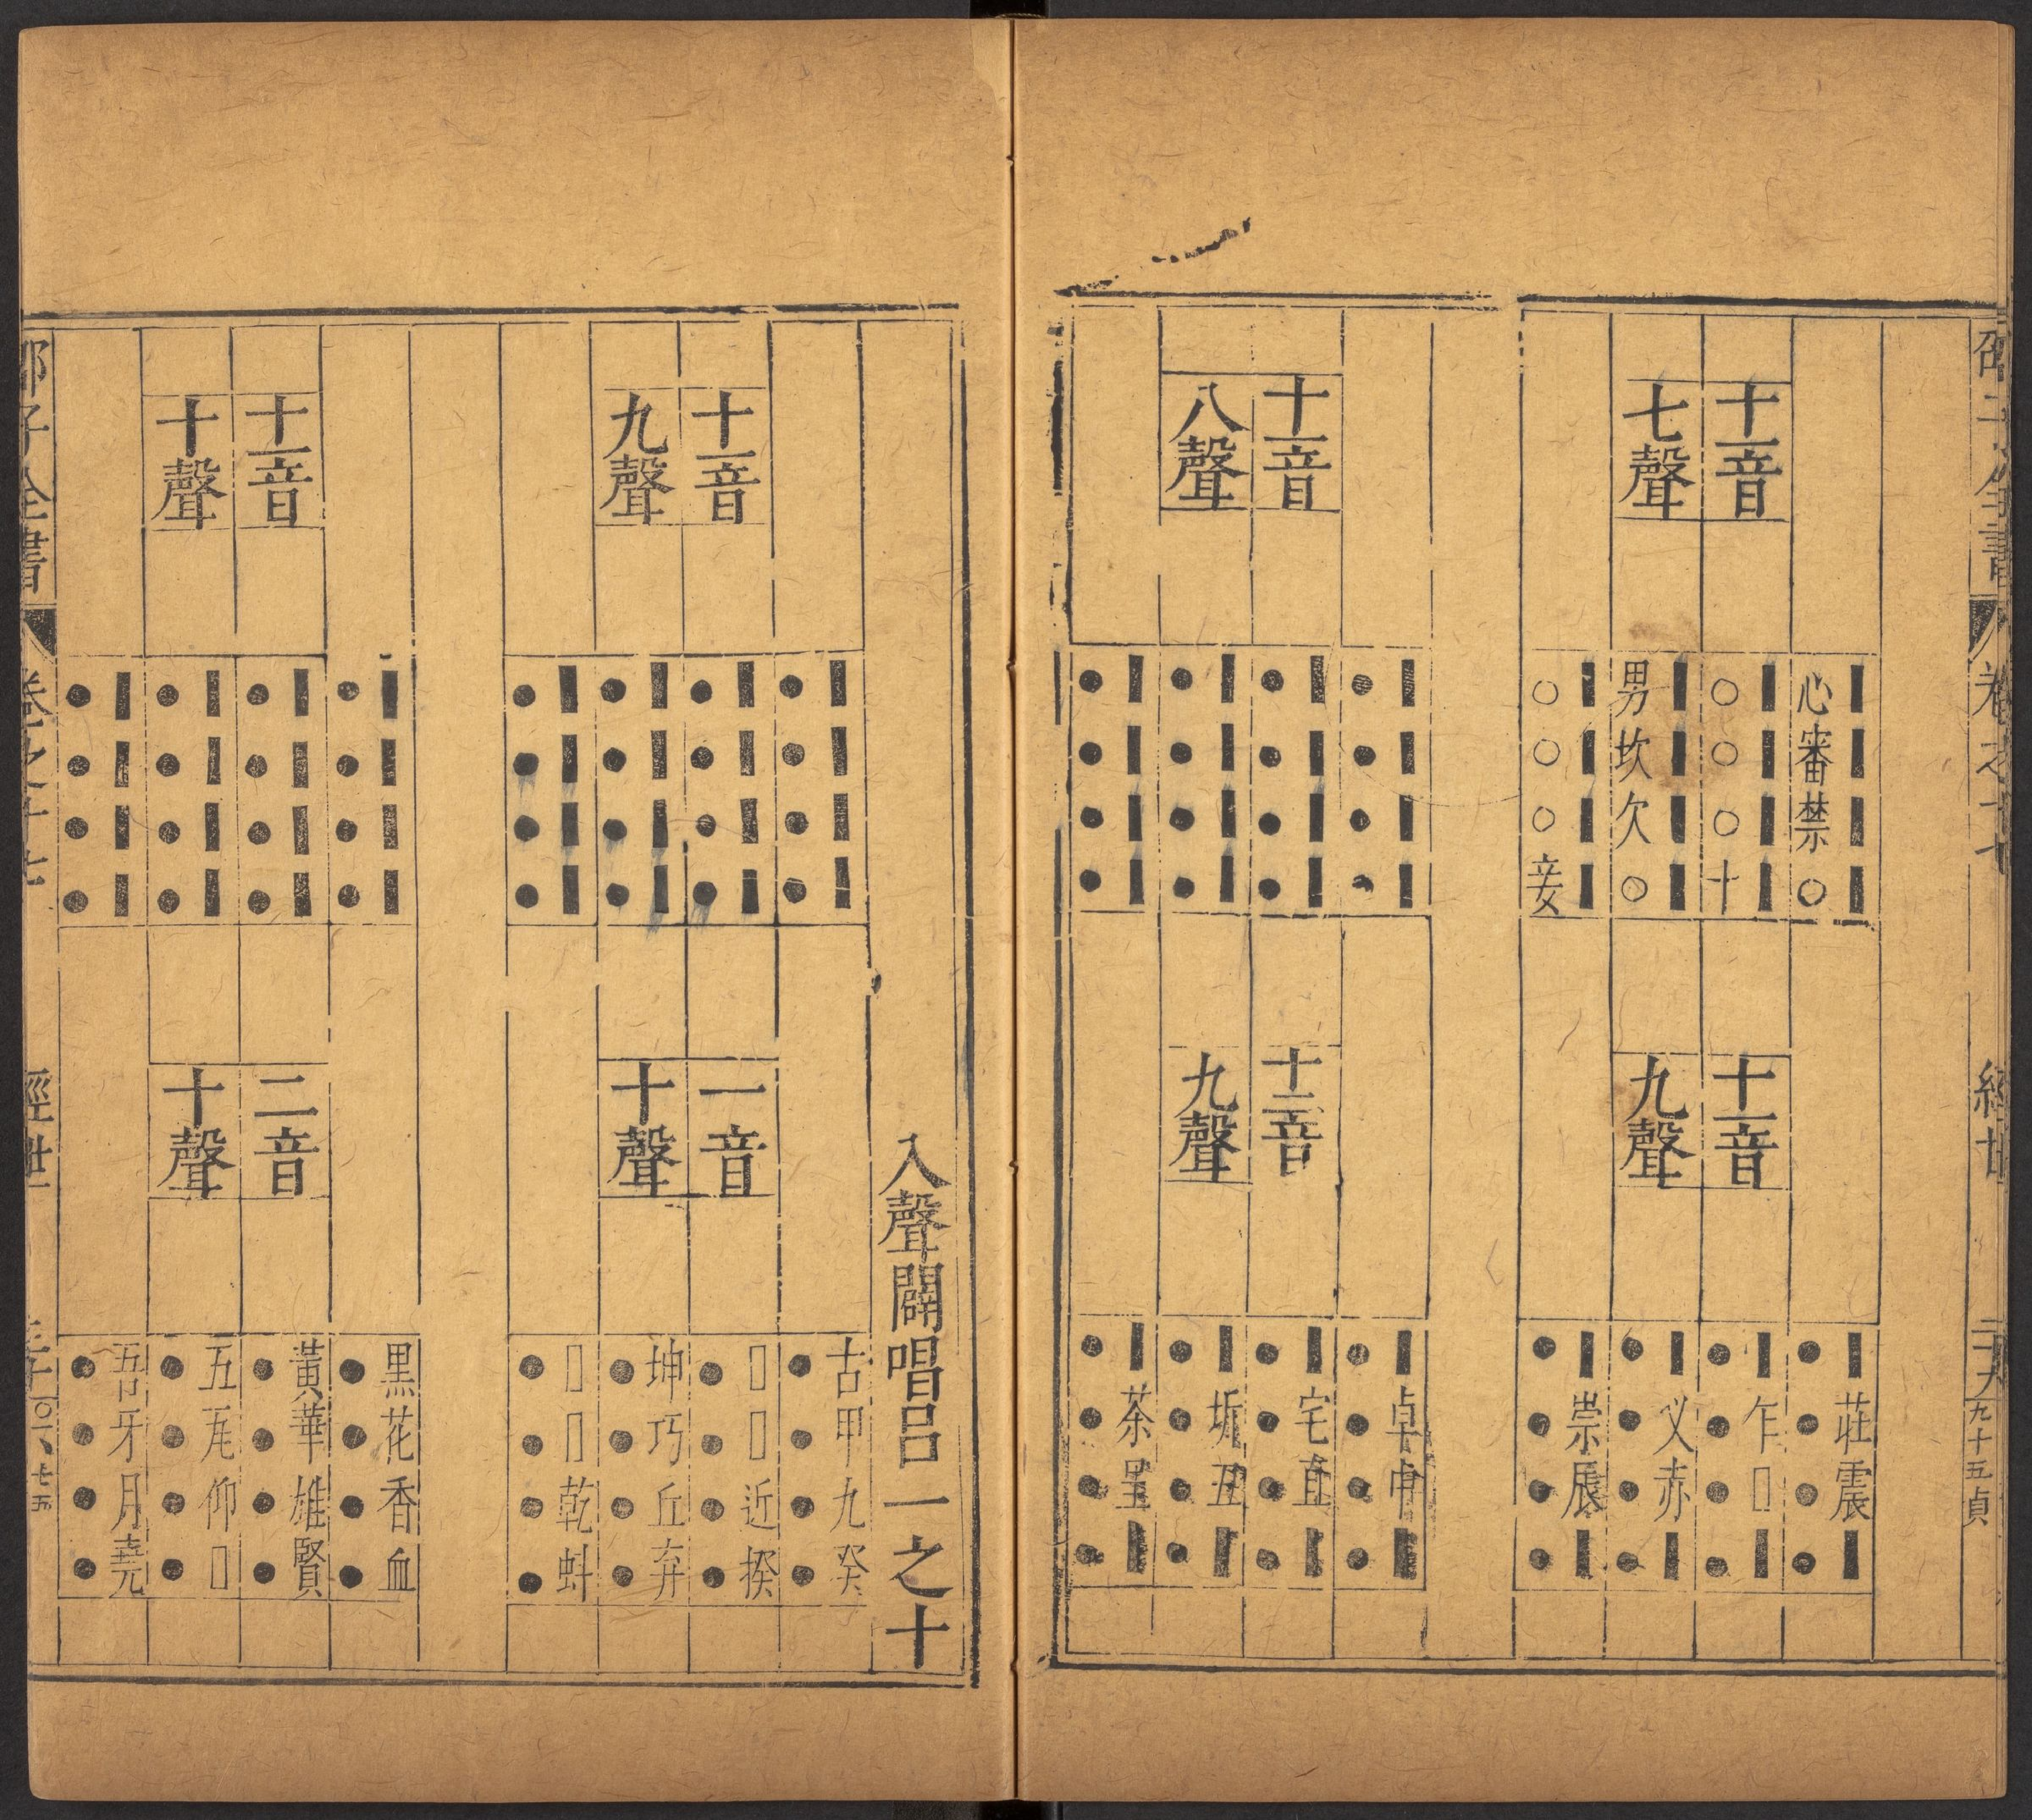 卷之十七
經世
九十五貞
十一音
七聲
心審禁○
○○○十
男坎欠○
○○○妾
十一音
九聲
●莊●震●
●乍●□●
●乂●赤●
●崇●辰●
十一音
八聲
十二音
九聲
卓中
宅直
坼丑
茶呈
入聲闢唱呂一之十
十一音
九聲
一音
十聲
古甲九癸
□□近揆
坤巧丘弃
□□乾虯
十一音
十聲
二音
十聲
黑花香血
黃華雄賢
五瓦仰□
吾牙月堯
邵子全書
卷之十七
經世